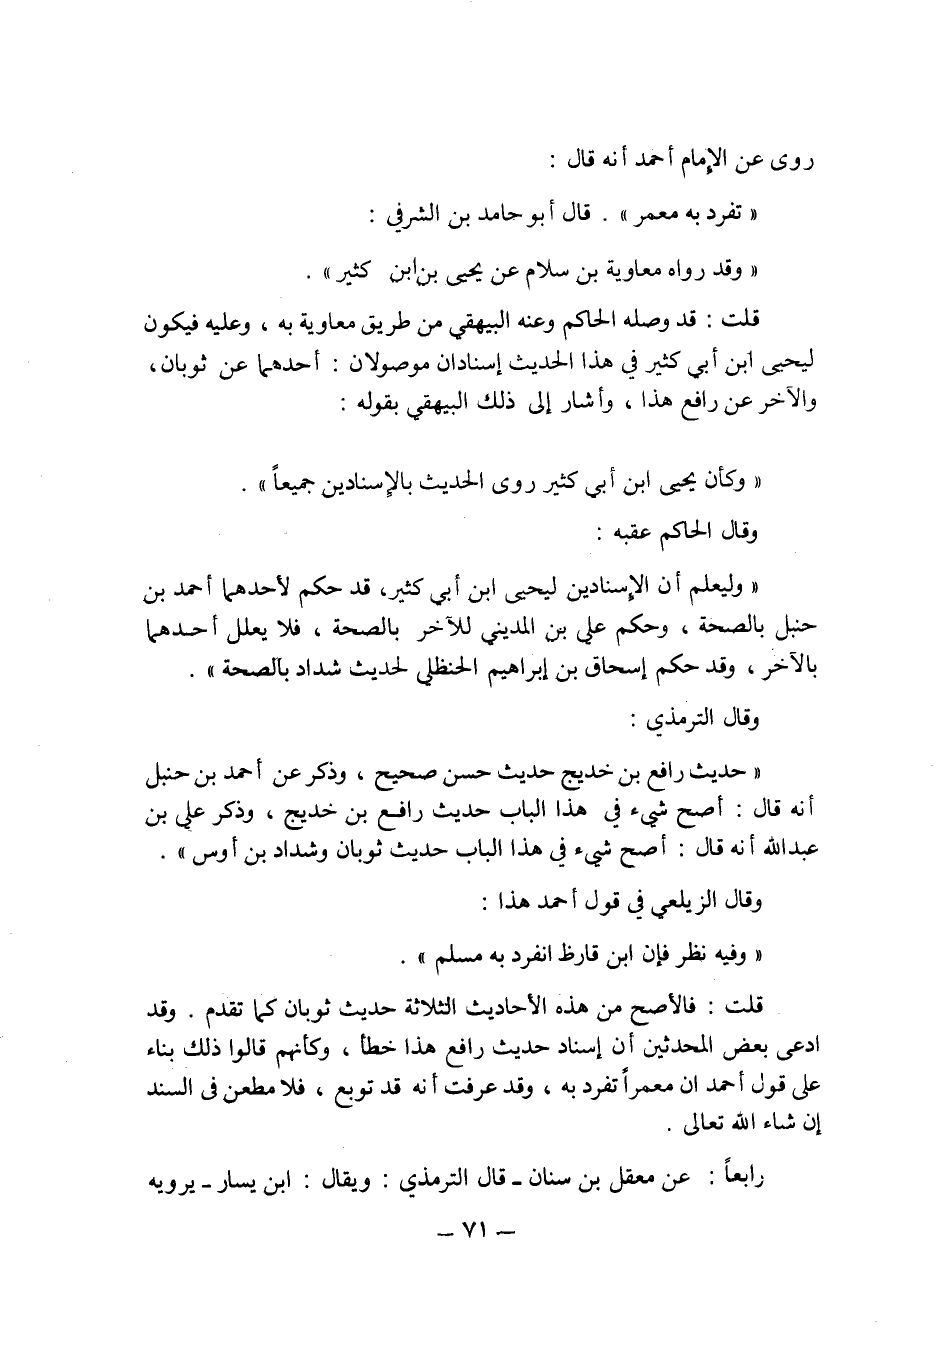 روى عن الإمام أحمد أنه قال :
« تفرد به معمر » . قال أبو حامد بن الشرفي :
« وقد رواه معاوية بن سلام عن يحيى بن ابن كثير » .
قلت : قد وصله الحاكم وعنه البيهقي من طريق معاوية به ، وعليه فيكون
ليحيى ابن أبي كثير في هذا الحديث إسنادان موصولان : أحدهما عن ثوبان،
والآخر عن رافع هذا ، وأشار إلى ذلك البيهقي بقوله :
« وكأن يحيى ابن أبي كثير روى الحديث بالإسنادين جميعاً » .
وقال الحاكم عقبه :
« وليعلم أن الإسنادين ليحيى ابن أبي كثير، قد حكم لأحدهما أحمد بن
حنبل بالصحة ، وحكم علي بن المديني للآخر بالصحة ، فلا يعلل أحدهما
بالآخر ، وقد حكم إسحاق بن إبراهيم الحنظلي لحديث شداد بالصحة » .
وقال الترمذي :
« حديث رافع بن خديج حديث حسن صحيح ، وذكر عن أحمد بن حنبل
أنه قال : أصح شيء في هذا الباب حديث رافع بن خديج ، وذكر علي بن
عبدالله أنه قال : أصح شيء في هذا الباب حديث ثوبان وشداد بن أوس » .
وقال الزيلعي في قول أحمد هذا :
« وفيه نظر فإن ابن قارظ انفرد به مسلم » .
قلت : فالأصح من هذه الأحاديث الثلاثة حديث ثوبان كما تقدم . وقد
ادعى بعض المحدثين أن إسناد حديث رافع هذا خطأ ، وكأنهم قالوا ذلك بناء
على قول أحمد ان معمراً تفرد به ، وقد عرفت أنه قد توبع ، فلا مطعن في السند
إن شاء الله تعالى .
رابعاً : عن معقل بن سنان ـ قال الترمذي : ويقال : ابن يسار ـ يرويه
– ٧١ –